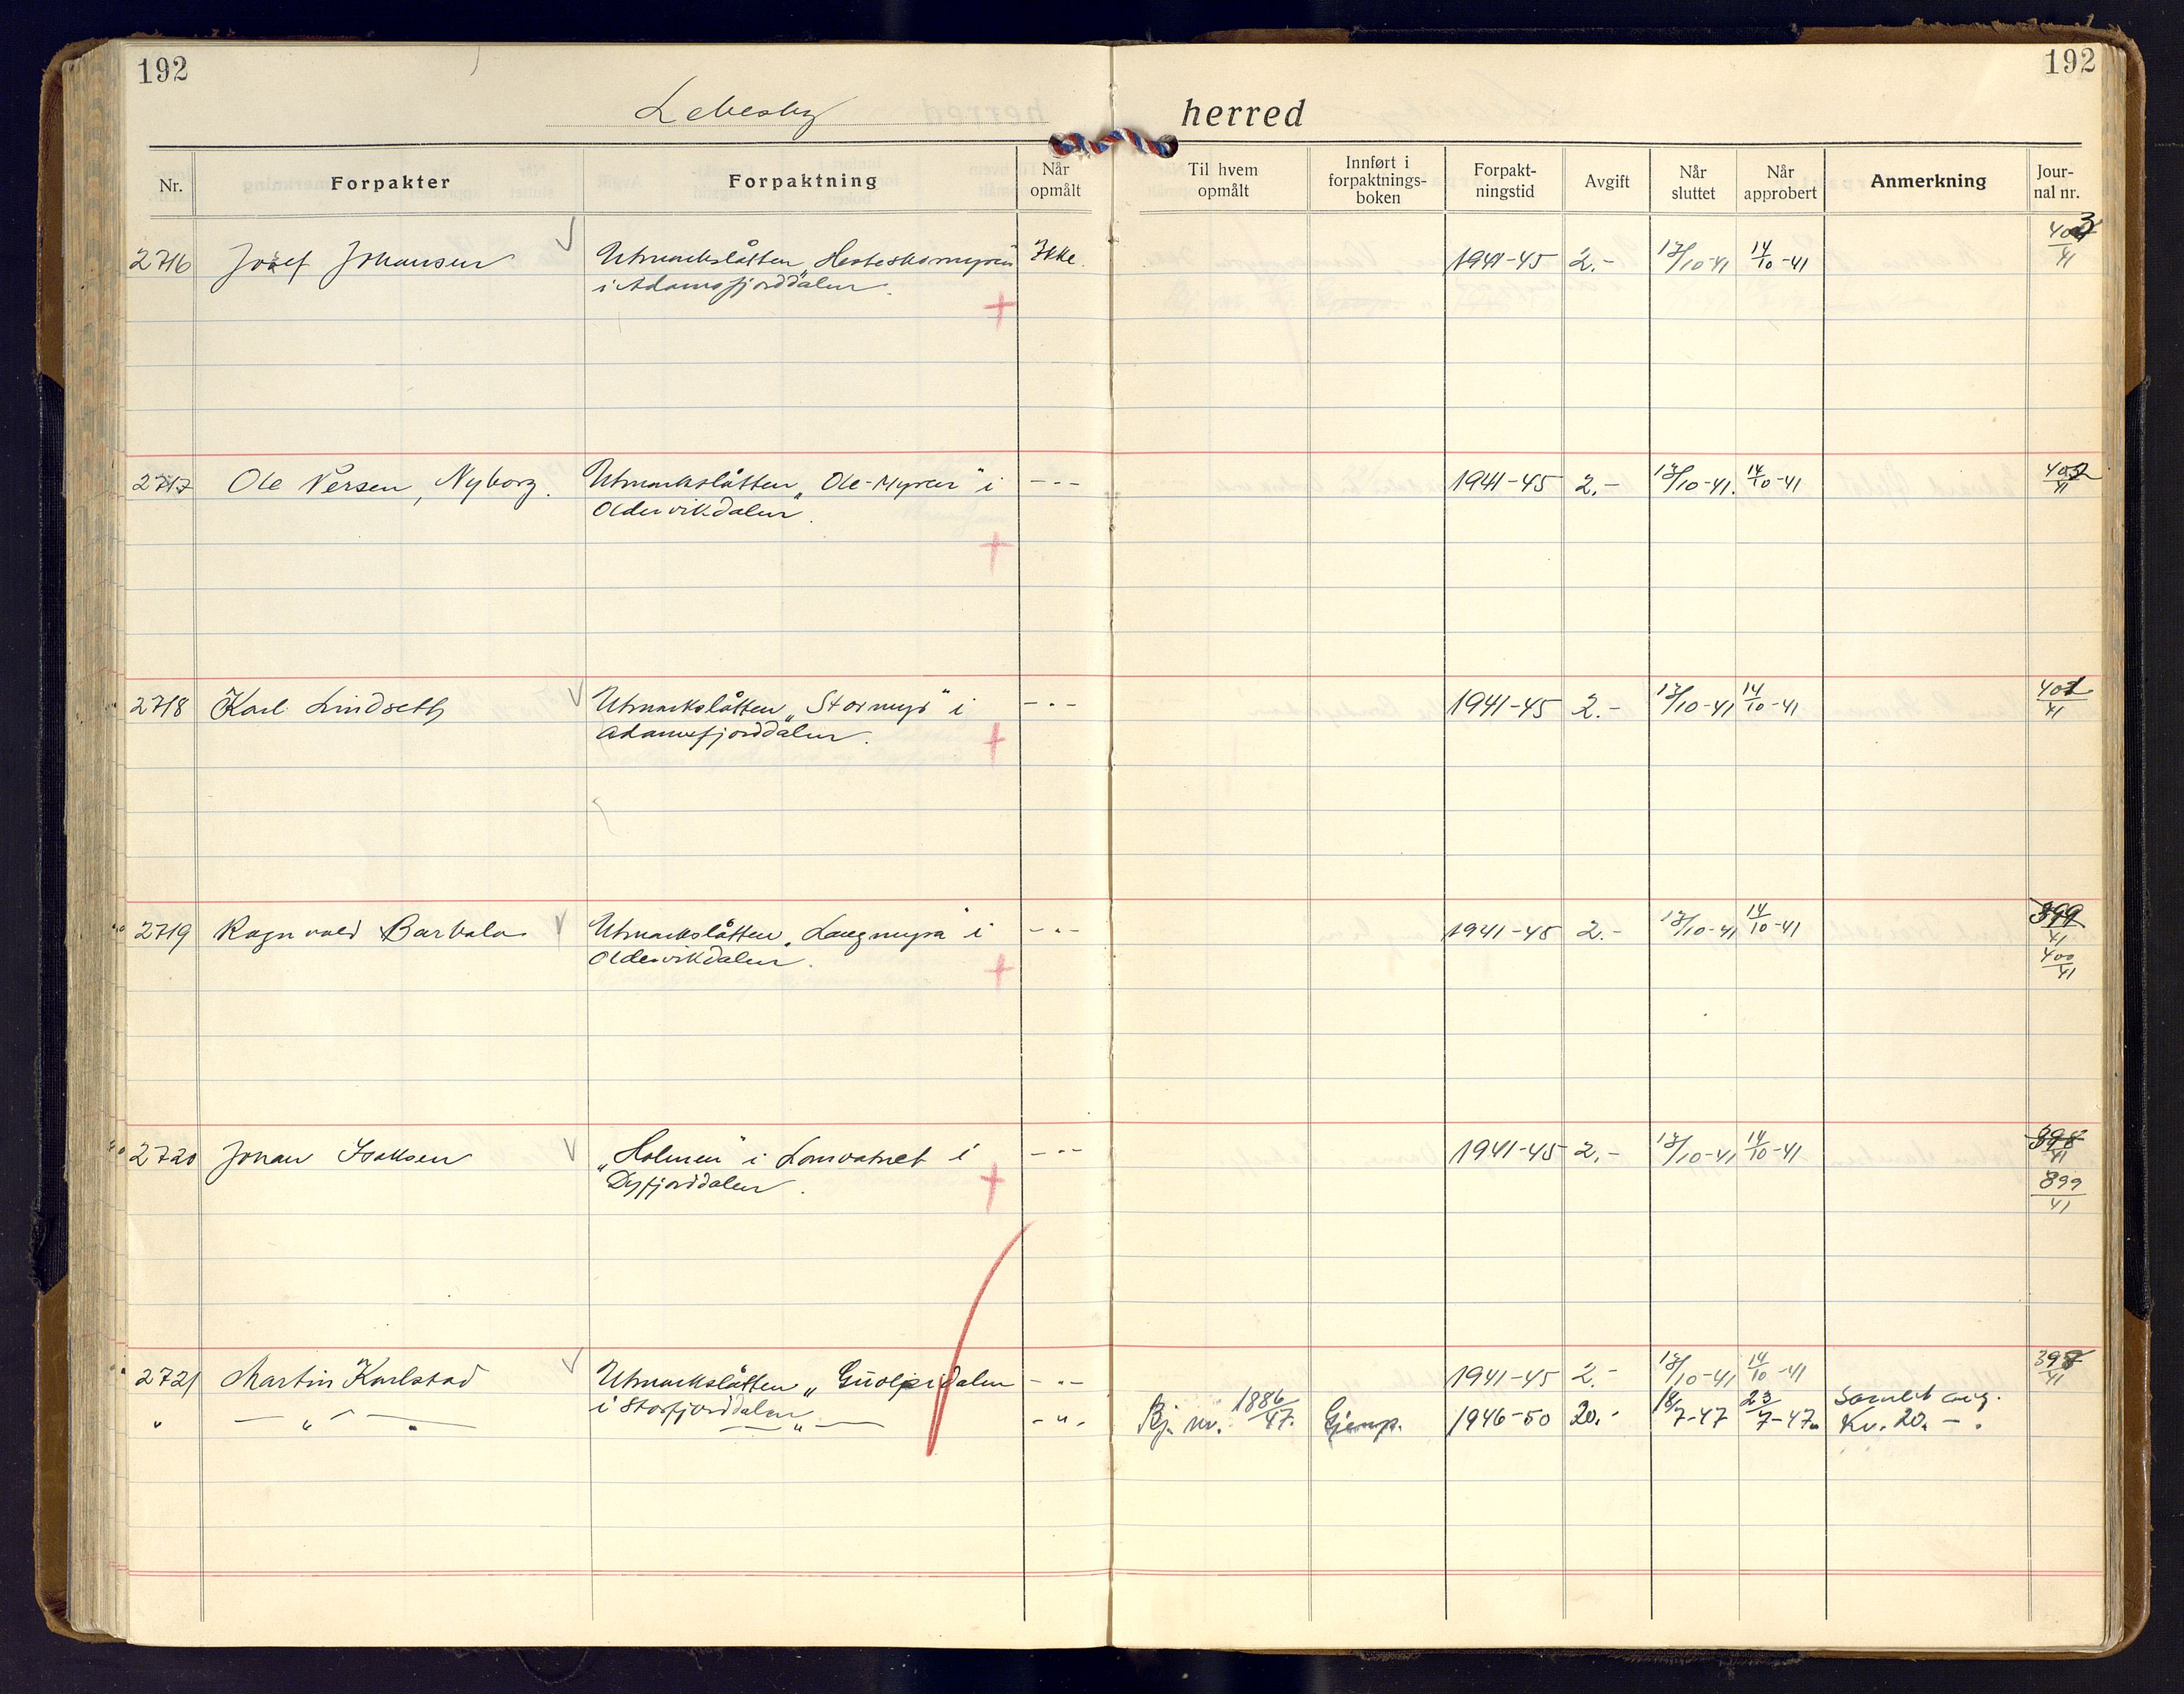 192
192
Lebesby herred
Nr.
Forpakter
Forpaktning
Når opmålt
Til hvem opmålt
Innført i forpaktnings-boken
Forpakt-ningstid
Avgift
Når sluttet
Når approbert
Anmerkning
Jour-nal nr.
2716 Josef Johansen Utmarkslåtten „Hesteskomyren" Ikke. 1941-45 2.- 13/10-41 14/10-41 403/41
i Adamsfjorddalen.
2717 Ole Persen, Nyborg. Utmarkslåtten „Ole-Myren" i -"- 1941-45 2.- 13/10-41. 14/10-41 402/41
Oldervikdalen.
2718 Karl Lindseth Utmarkslåtten „Stormyr" i -"- 1941-45 2.- 13/10-41 14/10-41 401/41
Adamsfjorddalen.
2719 Ragnvald Barbala Utmarkslåtten „Langmyra" i -"- 1941-45 2.- 13/10-41 14/10-41 399/41
Oldervikdalen. 400/41
2720 Johan Isaksen „Holmen" i Lomvatnet i -"- 1941-45 2.- 13/10-41 14/10-41 398/41
Dyfjorddalen. 399/41
2721 Martin Karlstad Utmarkslåtten „Guolpidalen -"- 1941-45 2.- 13/10-41 14/10-41 398/41
i Storfjorddalen
" -"- -"- -"- Bj. nr. 1886/47. Gjenp. 1946-50 20.- 18/7-47 23/7-47. Samlet avg.
Kr. 20.-.